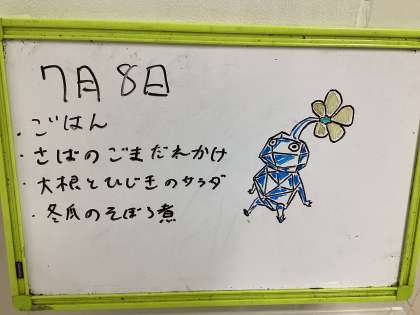 7月8日
・ごはん
・さばのごまだれかけ
・大根とひじきのサラダ
・冬瓜のそぼろ煮